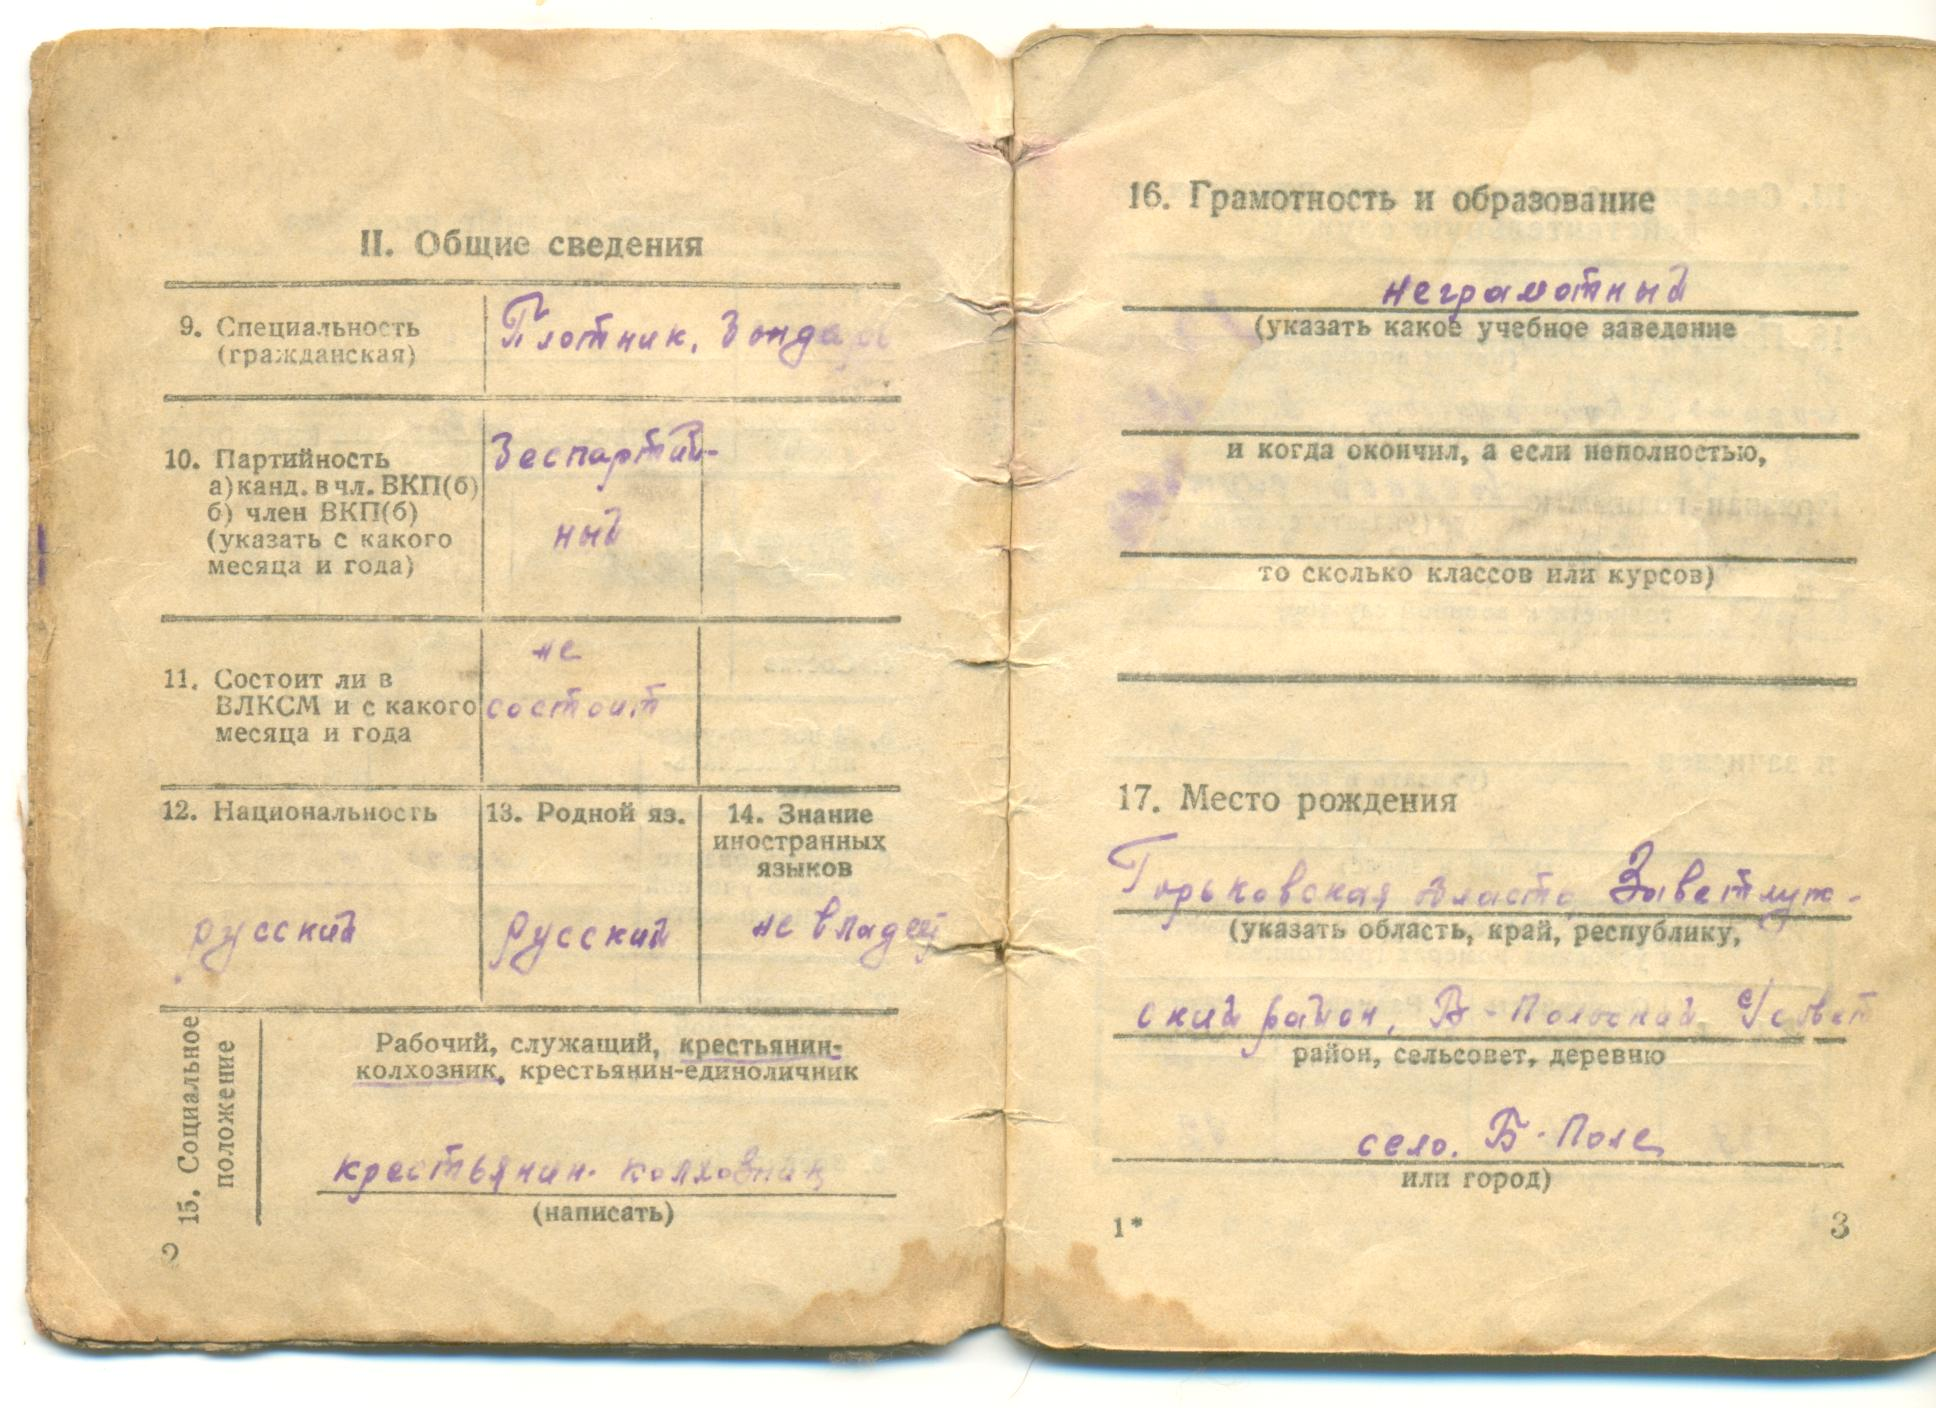 II. Общие сведения
9. Специальность
(гражданская)
Плотник,
10. Партийность
а) канд. в чл. ВКП(б)
б) член ВКП(б)
(указать с какого
месяца и года)
Беспартий-
ный
11. Состоит ли в
ВЛКСМ и с какого
месяца и года
не
состоит
12. Национальность
русский
13. Родной яз.
русский
14. Знание
иностранных
языков
не владеет
15. Социальное
положение
Рабочий, служащий, крестьянин-
колхозник, крестьянин-единоличник
крестьянин-колхозник
(написать)
2
16. Грамотность и образование
неграмотный
(указать какое учебное заведение
и когда окончил, а если неполностью,
то сколько классов или курсов)
17. Место рождения
Горьковская Заветлуж-
(указать область, край, республику,
ский район,
район, сельсовет, деревню
село. Б-Поле
или город)
1*
3